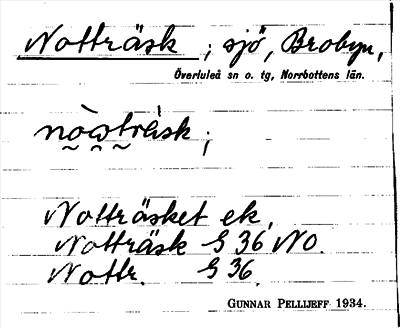 Notträsk ; sjö, Brobyn,
Överluleå sn o. tg, Norrbottens län.
nòωtràsk ;
Notträsket ek.
Notträsk G 36 NO.
Nottr. G 36.
GUNNAR PELLIJEFF 1934.